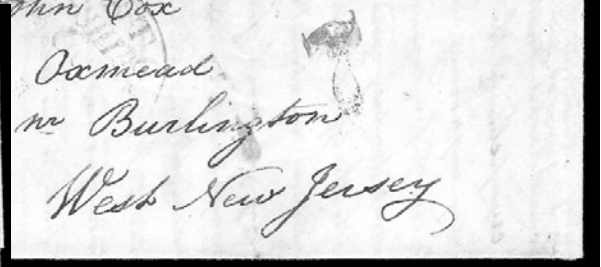 John Cox
Oxmead
nr Burlington
West New Jersey